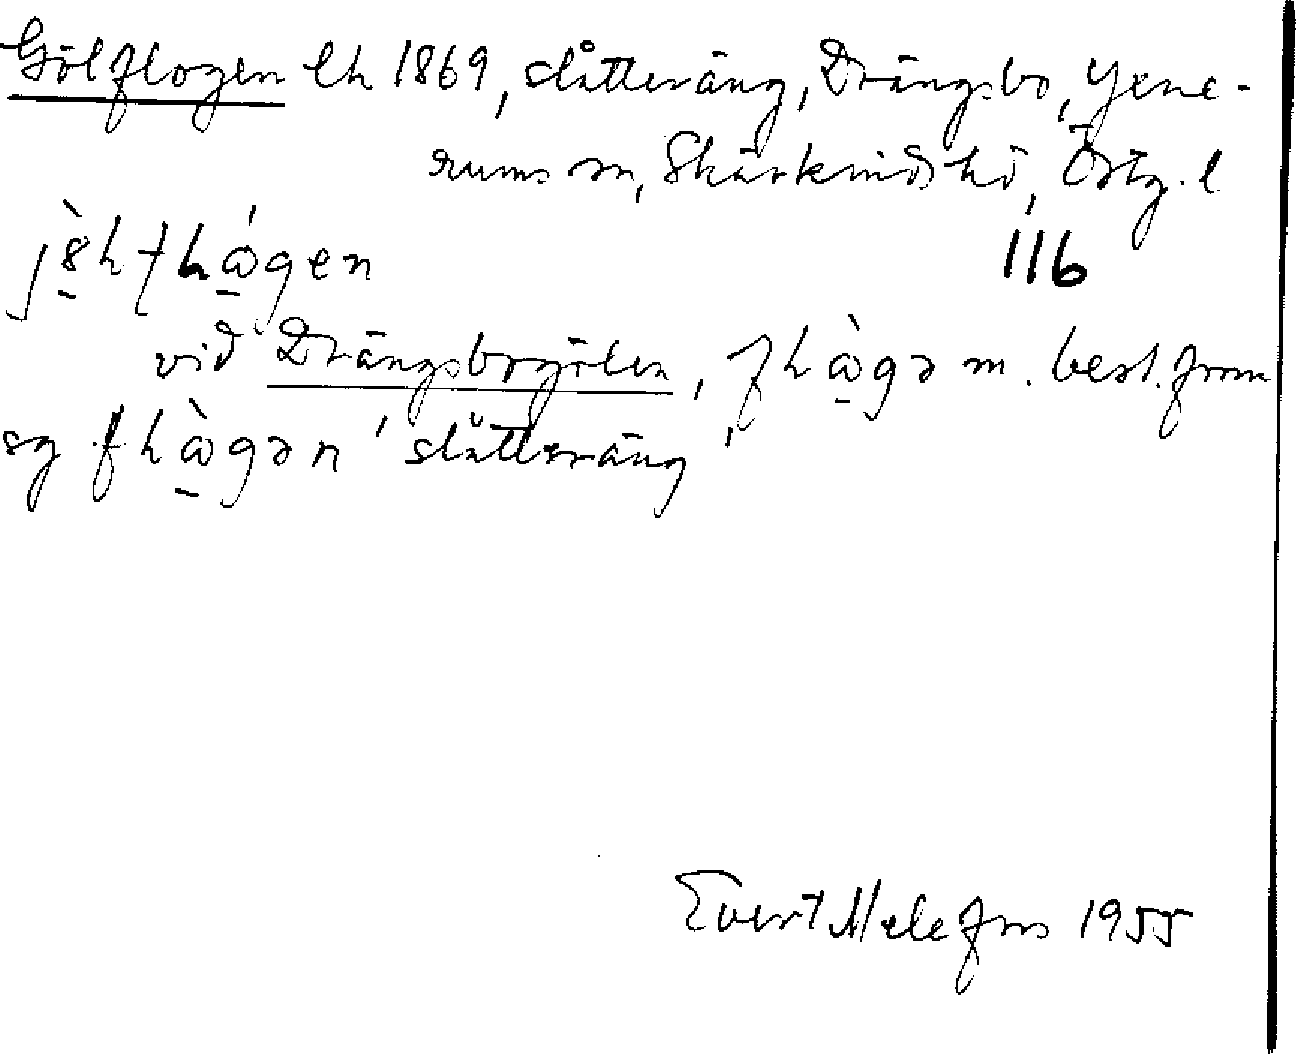 Gölflogen lh 1869, slåtteräng, Drängsbo, Yxne-
rums sn, Skärkinds hd, Östg. l
116
vid Drängsbogölen, m. best. form
sg 'slåtteräng'
Evert Melefors 1955